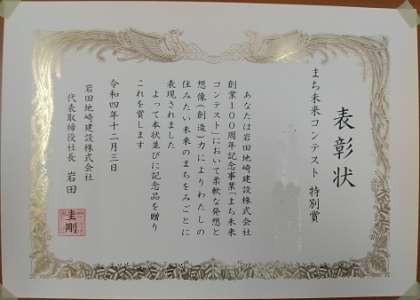 表彰状
まち未来コンテスト 特別賞
あなたは岩田地崎建設株式会社
創業100周年記念事業「まち未来
コンテスト」において柔軟な発想と
想像(創造)力によりわたしの
住みたい未来のまちをみごとに
表現されました
よって本状並びに記念品を贈り
これを賞します
令和四年十二月三日
岩田地崎建設株式会社
代表取締役社長 岩田 圭剛